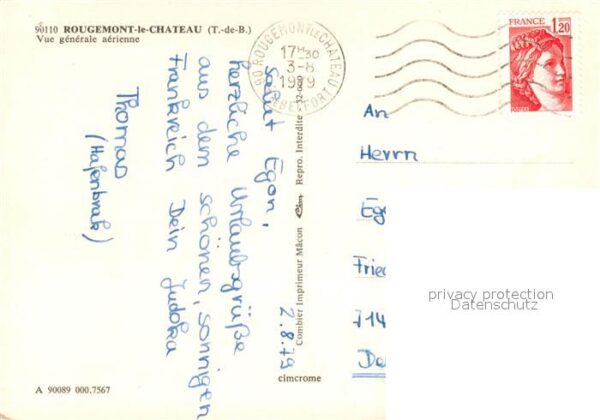 90110 ROUGEMONT-le-CHATEAU (T.-de-B.)
Vue générale aérienne
90 ROUGEMONT LE CHATEAU
17H30
3-8
1979
T. DE BELFORT
FRANCE
1,20
2.8.79
Salut Egon,
herzliche Urlaubsgrüße
aus dem schönen, sonnigen
Frankreich Dein Judoka
Thomas
(Hafenbrak)
Combier Imprimeur Mâcon Cim Repro. Interdite
cimcrome
A 90089 000.7567
An
Herrn
Eg
Fried
714
De
privacy protection
Datenschutz